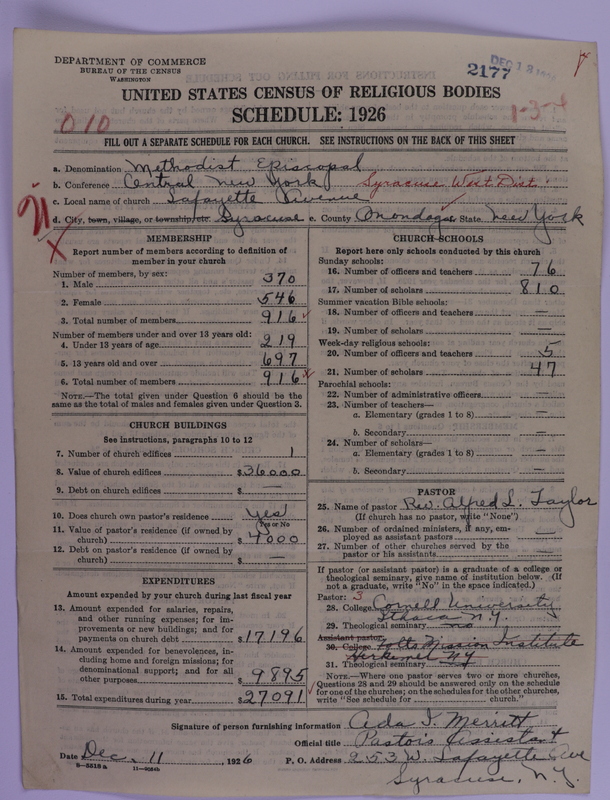 DEPARTMENT OF COMMERCE
BUREAU OF THE CENSUS
WASHINGTON
2177
DEC 13
UNITED STATES CENSUS OF RELIGIOUS BODIES
SCHEDULE: 1926
1-3-4
010
FILL OUT A SEPARATE SCHEDULE FOR EACH CHURCH. SEE INSTRUCTIONS ON THE BACK OF THIS SHEET
a. Denomination Methodist Episcopal
b. Conference Central New York Syracuse West Dist.
c. Local name of church Lafayette Avenue
d. City, town, village, or township, etc. Syracuse e. County Onondaga f. State New York
MEMBERSHIP
Report number of members according to definition of
member in your church
Number of members, by sex:
1. Male 370
2. Female 546
3. Total number of members 916
Number of members under and over 13 years old:
4. Under 13 years of age 219
5. 13 years old and over 697
6. Total number of members 916
NOTE.—The total given under Question 6 should be the
same as the total of males and females given under Question 3.
CHURCH BUILDINGS
See instructions, paragraphs 10 to 12
7. Number of church edifices 1
8. Value of church edifices $36000
9. Debt on church edifices $ —
10. Does church own pastor's residence Yes
(Yes or No
11. Value of pastor's residence (if owned by
church) $ 4000
12. Debt on pastor's residence (if owned by
church) $ —
EXPENDITURES
Amount expended by your church during last fiscal year
13. Amount expended for salaries, repairs,
and other running expenses; for im-
provements or new buildings; and for
payments on church debt $17196
14. Amount expended for benevolences, in-
cluding home and foreign missions; for
denominational support; and for all
other purposes $ 9895
15. Total expenditures during year $27091
CHURCH SCHOOLS
Report here only schools conducted by this church
Sunday schools:
16. Number of officers and teachers 76
17. Number of scholars 810
Summer vacation Bible schools:
18. Number of officers and teachers —
19. Number of scholars —
Week-day religious schools:
20. Number of officers and teachers 5
21. Number of scholars 47
Parochial schools:
22. Number of administrative officers —
23. Number of teachers—
a. Elementary (grades 1 to 8) —
b. Secondary —
24. Number of scholars—
a. Elementary (grades 1 to 8) —
b. Secondary —
PASTOR
25. Name of pastor Rev. Alfred L. Taylor
(If church has no pastor, write "None")
26. Number of ordained ministers, if any, em-
ployed as assistant pastors —
27. Number of other churches served by the
pastor or his assistants —
If pastor (or assistant pastor) is a graduate of a college or
theological seminary, give name of institution below. (If
not a graduate, write "No" in the space indicated.)
Pastor: 3
28. College Cornell University
Ithaca N.Y.
29. Theological seminary no
Assistant pastor:
30. College Folts Mission Institute
Herkimer N.Y.
31. Theological seminary
NOTE.—Where one pastor serves two or more churches,
Questions 28 and 29 should be answered only on the schedule
for one of the churches; on the schedules for the other churches,
write "See schedule for church."
Signature of person furnishing information Ada I. Merritt
Official title Pastor's Assistant
Date Dec. 11, 1926 P. O. Address 253 W. Lafayette Ave
8—5518 a
Syracuse, N.Y.